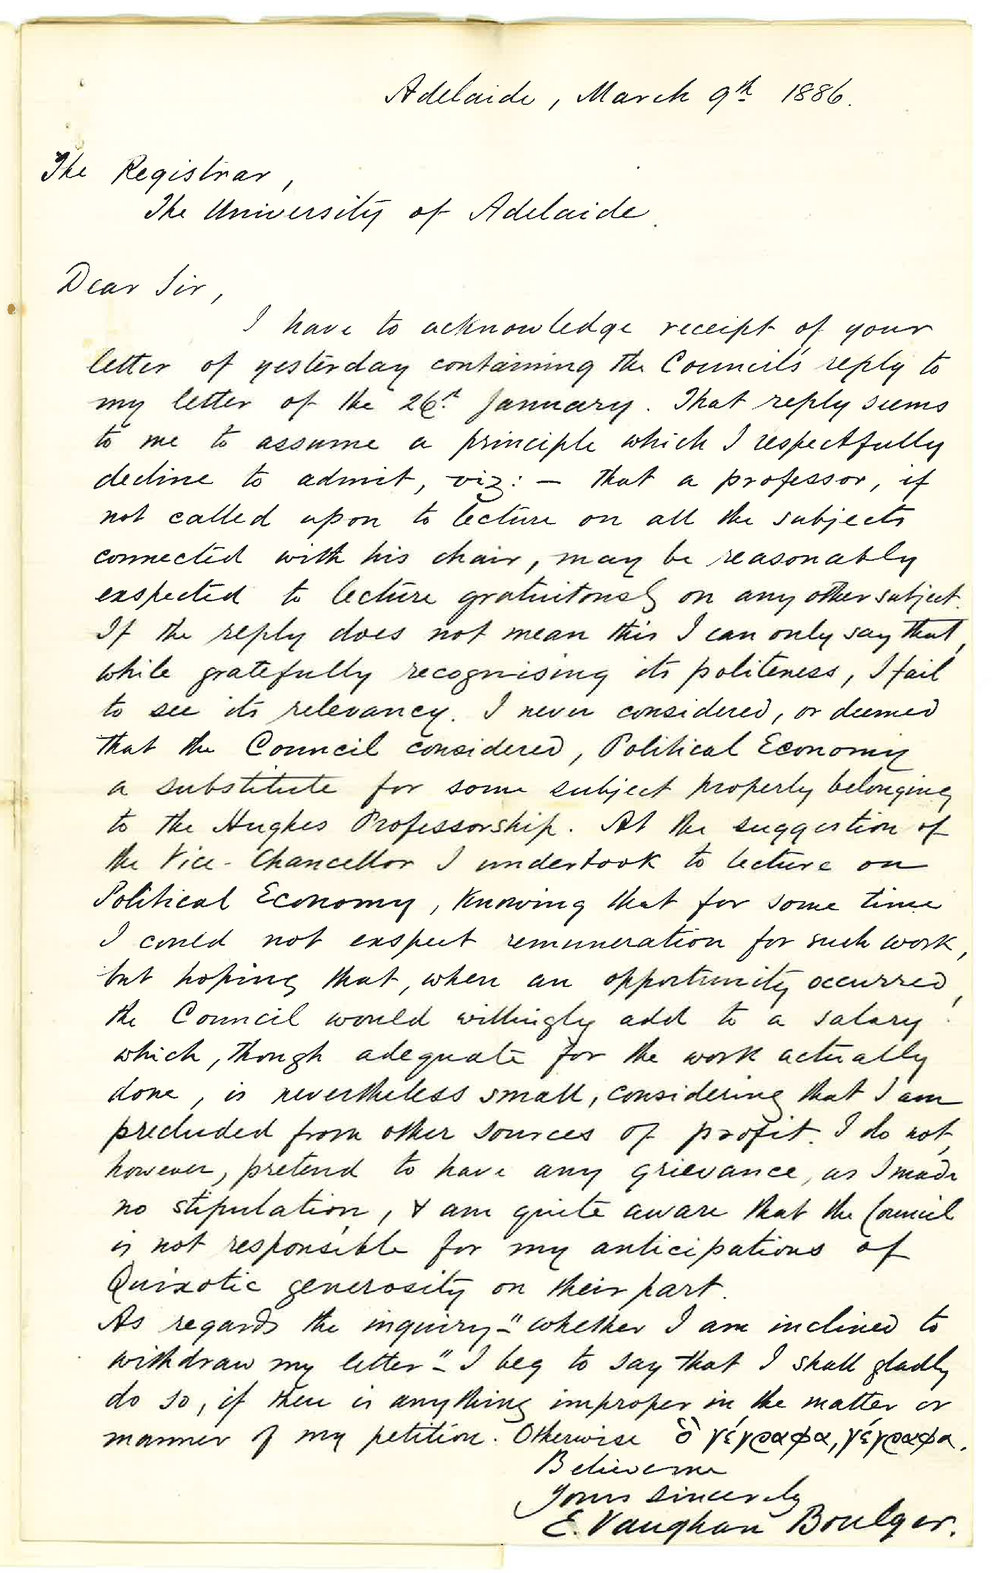 Adelaide, March 9th 1886.
The Registrar,
The University of Adelaide.
Dear Sir,
I have to acknowledge receipt of your
letter of yesterday containing the Council's reply to
my letter of the 26th January. That reply seems
to me to assume a principle which I respectfully
decline to admit, viz: — that a professor, if
not called upon to lecture on all the subjects
connected with his chair, may be reasonably
expected to lecture gratuitously on any other subject.
If the reply does not mean this I can only say that,
while gratefully recognising its politeness, I fail
to see its relevancy. I never considered, or deemed
that the Council considered, Political Economy
a substitute for some subject properly belonging
to the Hughes Professorship. At the suggestion of
the Vice-Chancellor I undertook to lecture on
Political Economy, knowing that for some time
I could not expect remuneration for such work,
but hoping that, when an opportunity occurred,
the Council would willingly add to a salary
which, though adequate for the work actually
done, is nevertheless small, considering that I am
precluded from other sources of profit. I do not,
however, pretend to have any grievance, as I made
no stipulation, & am quite aware that the Council
is not responsible for my anticipations of
Quixotic generosity on their part.
As regards the inquiry - "whether I am inclined to
withdraw my letter" - I beg to say that I shall gladly
do so, if there is anything improper in the matter or
manner of my petition. Otherwise ὃ γέγραφα, γέγραφα.
Believe me
Yours sincerely
E. Vaughan Boulger.